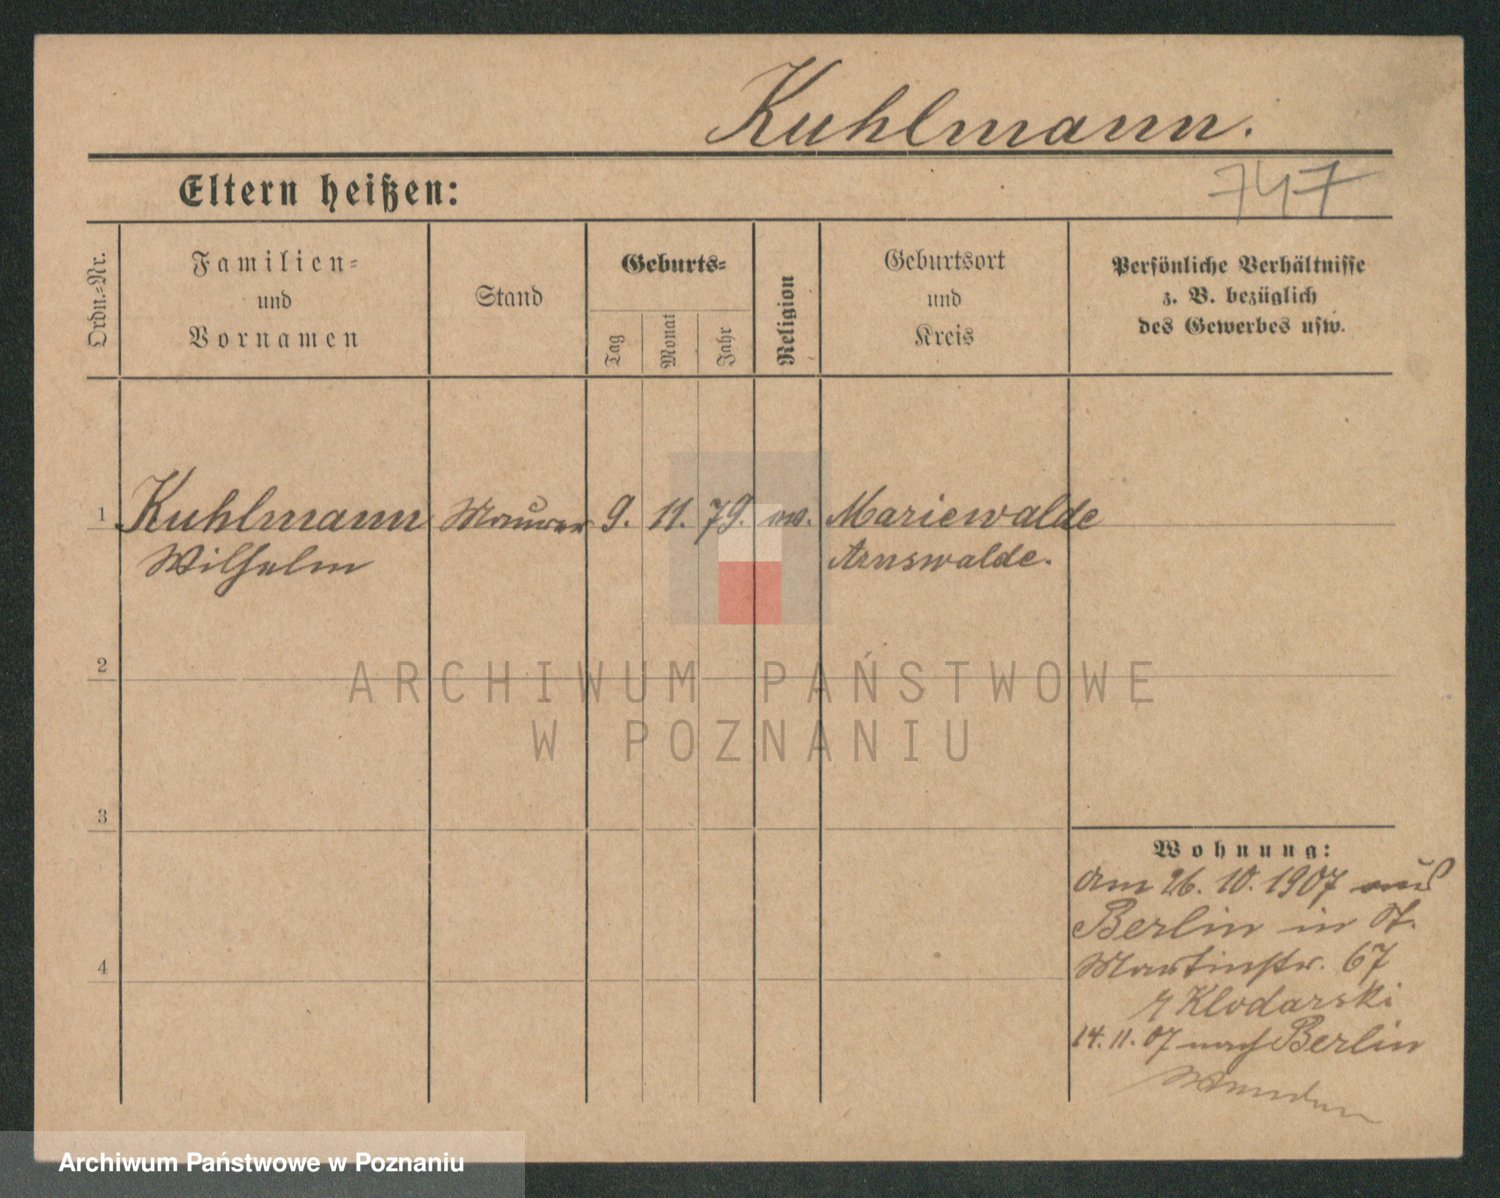 Kuhlmann.
Eltern heißen:
747
Ordn.-Nr.
Familien-
und
Vornamen
Stand
Geburts-
Tag
Monat
Jahr
Religion
Geburtsort
und
Kreis
Persönliche Verhältnisse
z. B. bezüglich
des Gewerbes usw.
1 Kuhlmann Maurer 9. 11. 79. Mariewalde
Wilhelm Arnswalde.
2
ARCHIWUM PAŃSTWOWE
W POZNANIU
3
Wohnung:
Am 26. 10. 1907 aus
Berlin in St.
4 Martinstr. 67
Klodarski
14. 11. 07 nach Berlin
Archiwum Państwowe w Poznaniu